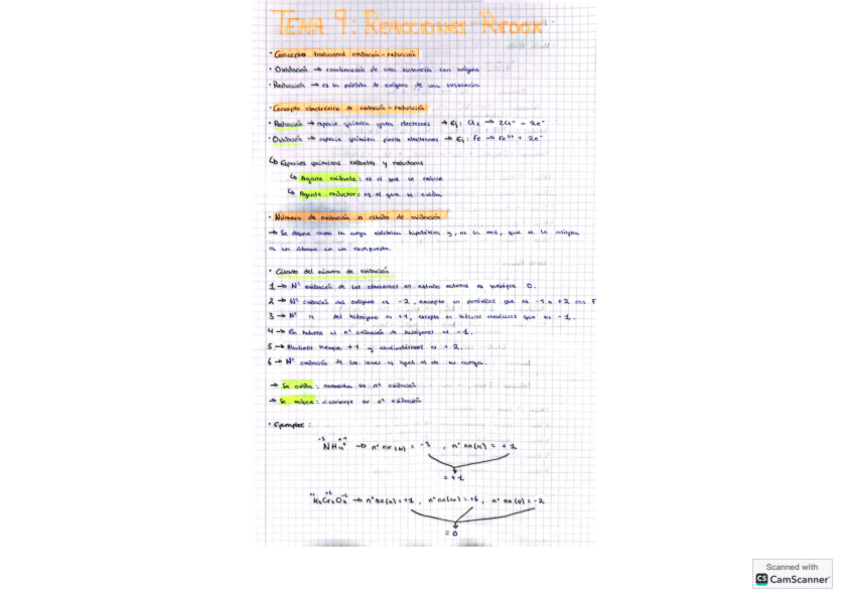 TEMA 9: REACCIONES REDOX
· Concepto tradicional oxidación-reducción
· Oxidación → combinación de una sustancia con oxígeno
· Reducción → es la pérdida de oxígeno de una sustancia
· Concepto electrónico de oxidación-reducción
· Reducción → especie química gana electrones → Ej: Cl₂ → 2Cl⁻ - 2e⁻
· Oxidación → especie química pierde electrones → Ej: Fe → Fe²⁺ + 2e⁻
↳ Especies químicas oxidantes y reductoras
↳ Agente oxidante: es el que se reduce
↳ Agente reductor: es el que se oxida
· Número de oxidación o estado de oxidación
→ Se define como la carga eléctrica hipotética y, no la real, que se le asigna
a un átomo en un compuesto.
· Cálculo del número de oxidación
1 → Nº oxidación de los elementos en estado natural es siempre 0.
2 → Nº oxidación del oxígeno es -2, excepto en peróxidos que es -1 o +2 con F
3 → Nº " del hidrógeno es +1, excepto en hidruros metálicos que es -1.
4 → En hidruros el nº oxidación de hidrógeno es -1.
5 → Alcalinos siempre +1 y alcalinotérreos es +2.
6 → Nº oxidación de los iones es igual al de su carga.
→ Se oxida: aumenta su nº oxidación
→ Se reduce: disminuye su nº oxidación
· Ejemplos:
-3 +1
NH₄⁺ → nº ox (N) = -3, nº ox (H) = +1
= +1
+1 +6 -2
K₂Cr₂O₇ → nº ox (K) = +1, nº ox (Cr) = +6, nº ox (O) = -2
= 0
Scanned with
CS CamScanner